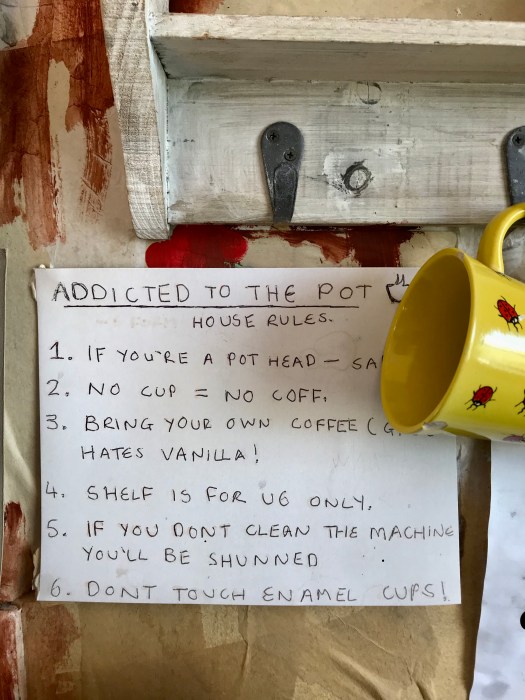 ADDICTED TO THE POT
HOUSE RULES.
1. IF YOU'RE A POT HEAD - SA
2. NO CUP = NO COFF.
3. BRING YOUR OWN COFFEE (G
HATES VANILLA!
4. SHELF IS FOR U6 ONLY.
5. IF YOU DONT CLEAN THE MACHINE
YOU'LL BE SHUNNED
6. DONT TOUCH ENAMEL CUPS!